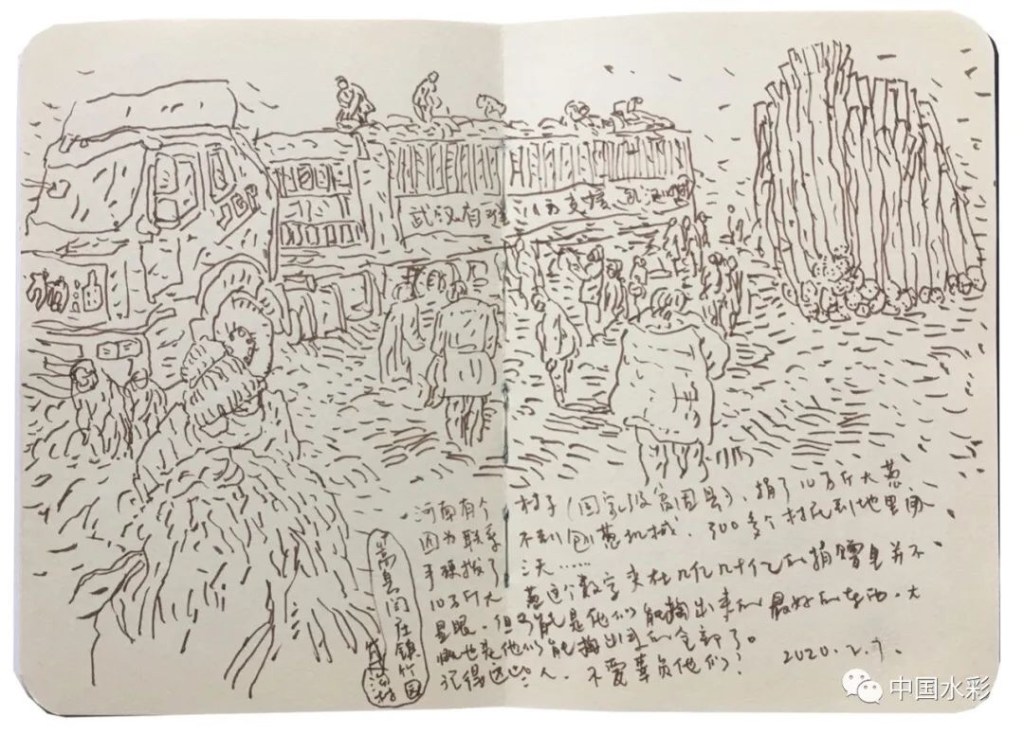 武汉有难
支援
加油
河南有个村子（国家级贫困县），捐了10万斤大葱，
因为联系不到刨葱机械，300多个村民到地里用
手硬拔了三天……
10万斤大葱这个数字夹杂几亿几十亿的捐赠里并不
显眼，但可能是他们能掏出来的最好的东西，大
概也是他们能掏出来的全部了。
记得这些人，不要辜负他们！
2020.2.7.
嵩县闫庄镇竹园
沟村
中国水彩